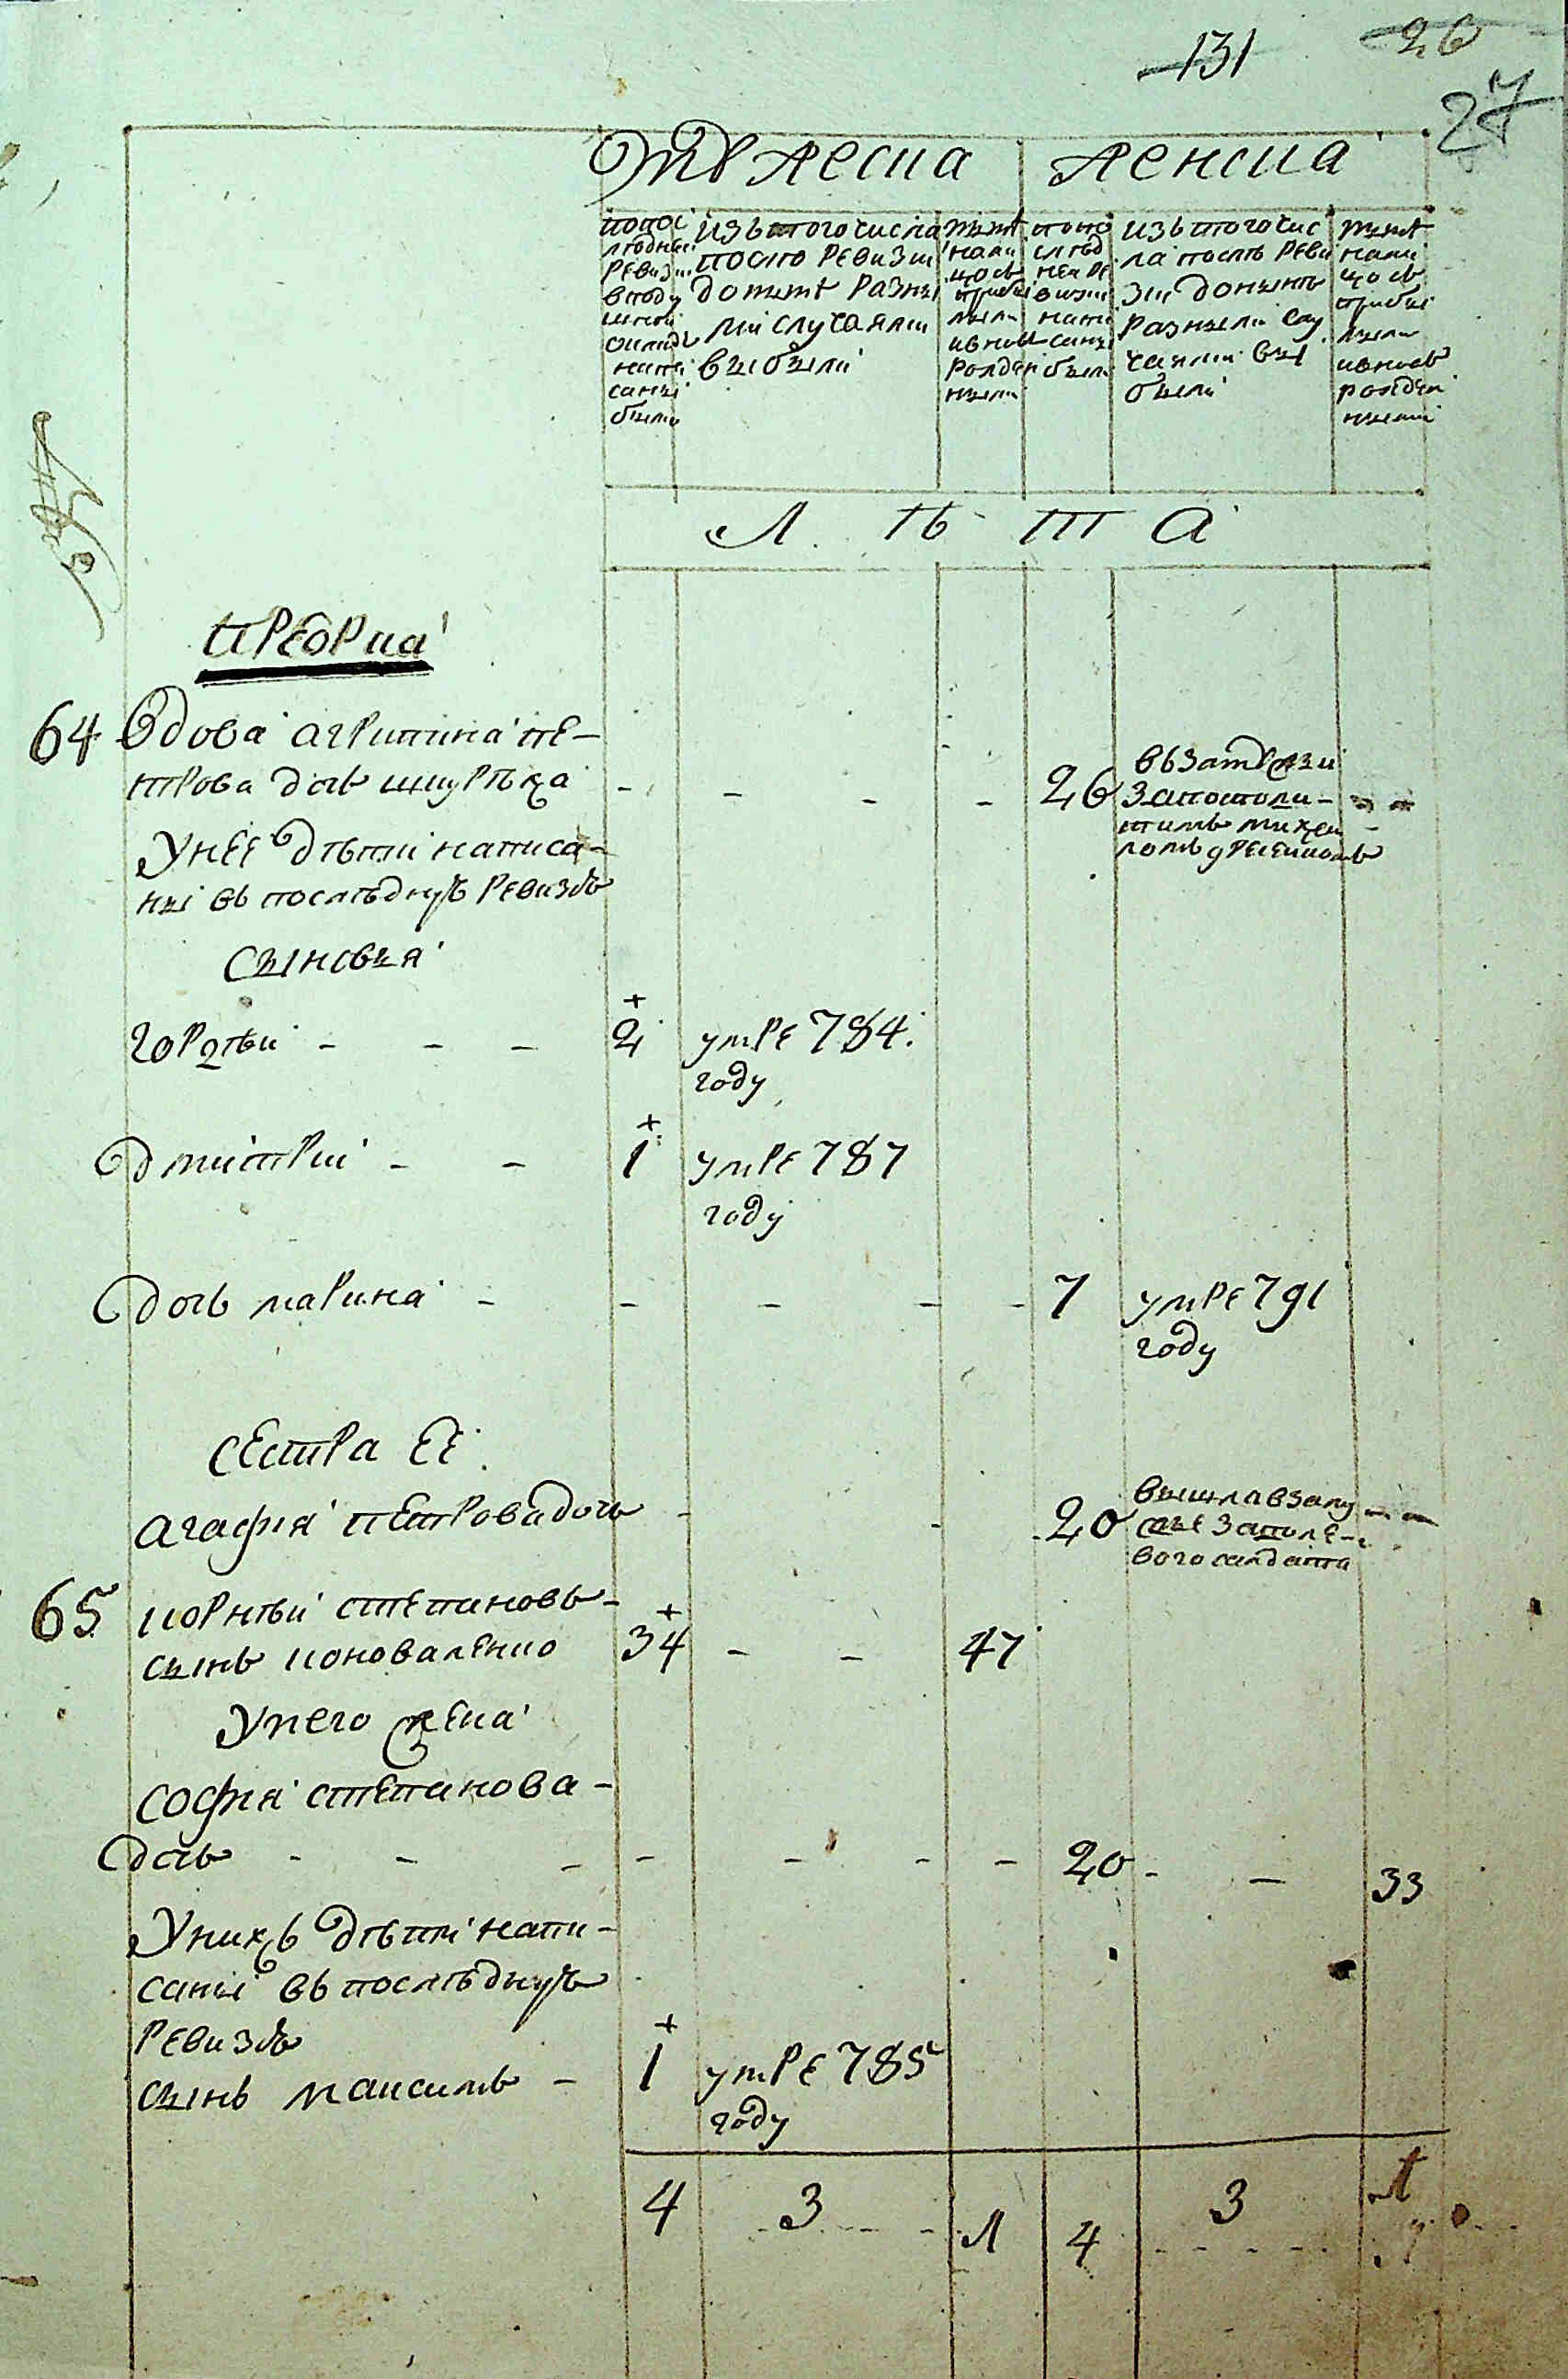 131 26
27
Мужеска женска
по пос
леднеи
ревизи
в поду
шной
оклад
напи
саны
были
изъ того числа
после ревизии
до ныне разны
ми случаями
выбыли
ныне
нали
цо съ
прибы
лыми
и вновь
рожден
ными
по по
след
ней ре
визии
напи
саны
были
изъ того чис
ла после реви
зии до ныне
разными слу
чаями вы
были
ныне
нали
цо съ
прибы
лыми
и вновь
рожден
ными
Л Ѣ Т А
64 вдова агрипина пе-
трова дочь 26
У нее дѣти написа-
ны въ последную ревизию
сыновья
гордѣи 2 умре 784
году
дмитрии 1 умре 787
году
дочь марина 7 умре 791
году
сестра ее
агафия петрова дочь 20 вышла в замуж
ство за поле-
вого салдата
65 корнѣи степановъ
сынъ коноваленко 34 47
У него жена
софия степанова
дочь 20 33
У нихъ дѣти напи-
саны въ последную
ревизию
сынъ максимъ 1 умре 785
году
4 3 1 4 3 1